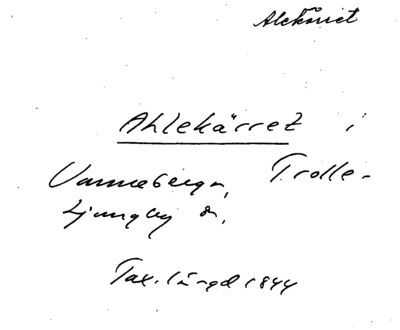 Alekärret
Ahlekärret i
Vanneberga, Trolle-
Ljungby sn,
Tax.längd 1844